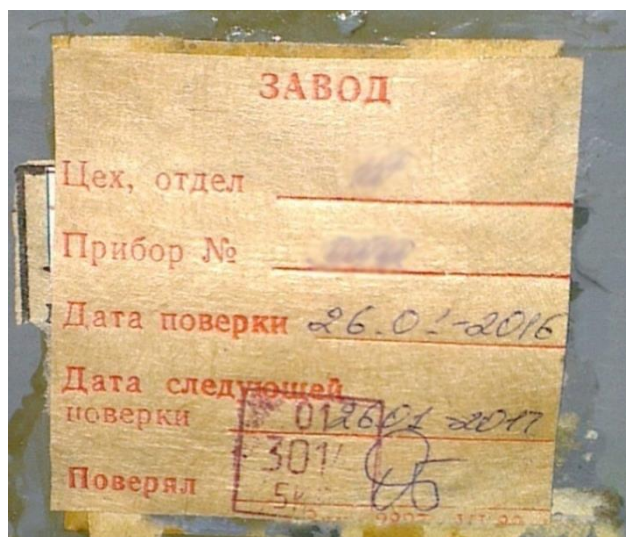 ЗАВОД
Цех, отдел
Прибор №
Дата поверки 26.01-2016
Дата следующей
поверки 26.01-2017
01
301
5к
Поверял